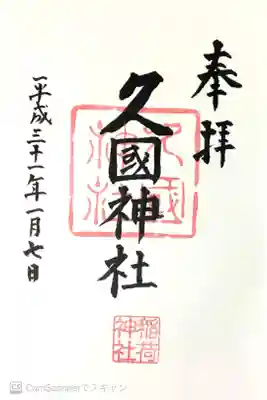 奉拝
久國神社
久國神社
平成三十一年一月七日
稲荷神社
CamScannerでスキャン